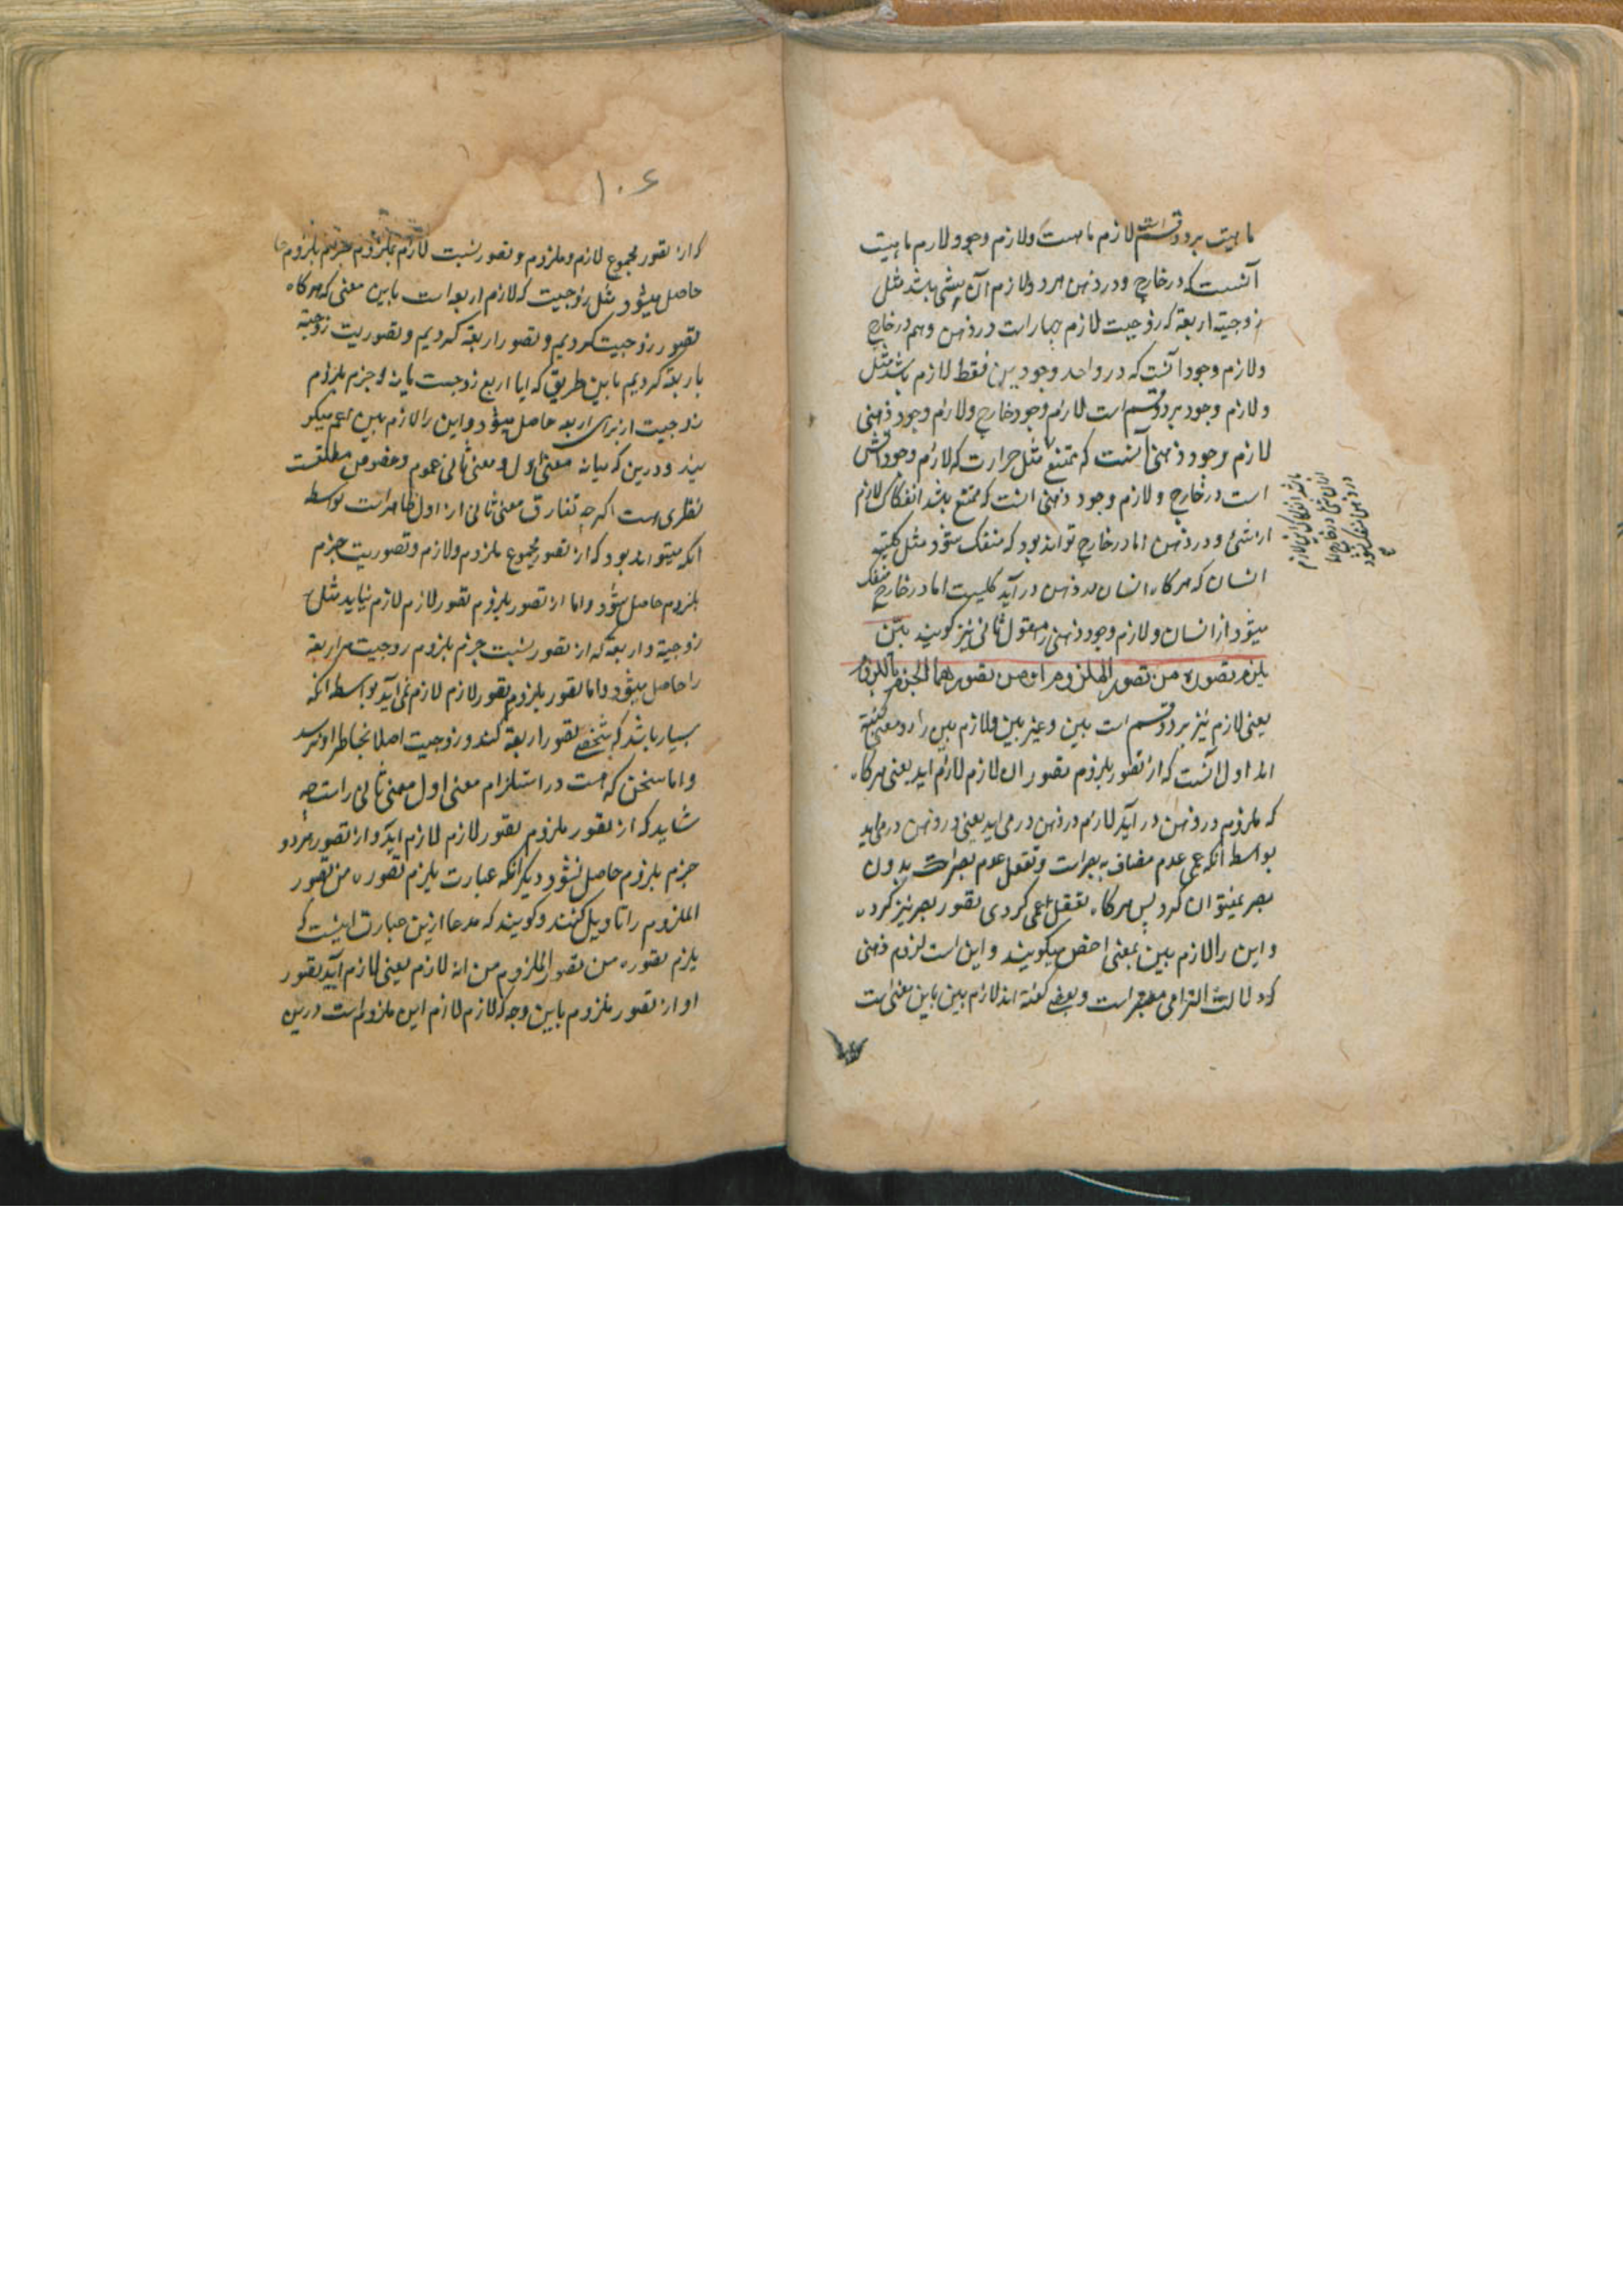 ماهیت بر دو قسم است لازم ماهیت و لازم وجود و لازم ماهیت
آنست که در خارج و در ذهن هر دو لازم آن شی باشد مثل
زوجیة اربعة که زوجیت لازم چهار است در ذهن و هم در خارج
و لازم وجود آنست که در واحد وجودین فقط لازم باشد مثل
و لازم وجود بر دو قسم است لازم وجود خارج و لازم وجود ذهنی
لازم وجود ذهنی آنست که ممتنع مثل حرارت که لازم وجود آتش
است در خارج و لازم وجود ذهنی انست که ممتنع باشد انفکاک لازم
از شیء و در ذهن اما در خارج تواند بود که منفک شود مثل کلیة
انسان که هر کاه انسان در ذهن در آید کلیست اما در خارج منفک
میشود از انسان و لازم وجود ذهنی را معقول ثانی نیز کویند بین
یلزم تصوره من تصور الملزوم او من تصورهما الجزم باللزوم
یعنی لازم نیز بر دو قسم است بین و غیر بین و لازم بین را دو معنی کفته
اند اول آنست که از تصور ملزوم تصور ان لازم لازم اید یعنی هر کاه
که ملزوم در ذهن در آید لازم در ذهن در می اید یعنی در ذهن در می اید
بواسطه آنکه عمی عدم مضاف به بصر است و تعقل عدم بصر است بدون
بصر نمیتوان کرد پس هر کاه تعقل اعمی کردی تصور بصر نیز کرده
و این را لازم بین بمعنی اخص میکویند و این است لزوم ذهنی
که در دلالت التزامی معتبر است و بعضی کفته اند لازم بین باین معنی است
که از تصور مجموع لازم و ملزوم و تصور نسبت لازم بملزوم جزم بلزوم
حاصل میشود مثل زوجیت که لازم اربعه است باین معنی که هر کاه
تصور زوجیت کردیم و تصور اربعة کردیم و تصور نسبت زوجیة
باربعة کردیم باین طریق که ایا اربع زوجست یا نه جزم بلزوم
زوجیت از برای اربعه حاصل میشود و این را لازم بین اعم میکو
یند و درین که میانه معنی اول و معنی ثانی عموم و خصوص مطلقست
نظری است اکر چه تفارق معنی ثانی از اول ظاهر است بواسطه
آنکه میتواند بود که از تصور مجموع ملزوم و لازم و تصور نسبت جزم
بلزوم حاصل شود و اما از تصور ملزوم تصور لازم لازم نیاید مثل
زوجیة و اربعة که از تصور نسبت جزم بلزوم زوجیت مر اربعة
را حاصل میشود و اما تصور ملزوم تصور لازم لازم نمی آید بواسطه آنکه
بسیار باشد که شخصی تصور اربعة کند و زوجیت اصلا بخاطر او نرسد
و اما سخن که هست در استلزام معنی اول معنی ثانی راست چه
شاید که از تصور ملزوم تصور لازم لازم اید و از تصور هر دو
جزم بلزوم حاصل نشود دیکر آنکه عبارت یلزم تصوره من تصور
الملزوم را تاویل کنند و کویند که مدعا ازین عبارت اینست که
یلزم تصوره من تصور الملزوم من انه لازم یعنی لازم آید تصور
او از تصور ملزوم باین وجه که لازم لازم این ملزوم است درین
۱۰۶